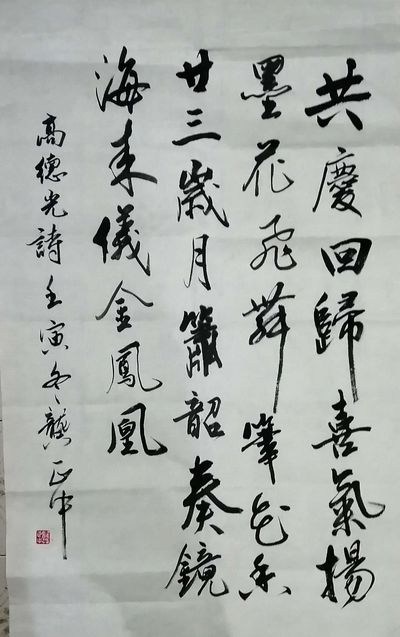 共慶回歸喜氣揚
墨花飛舞筆花香
廿三歲月簫韶奏鏡
海來儀金鳳凰
高德光詩壬寅冬龔正中